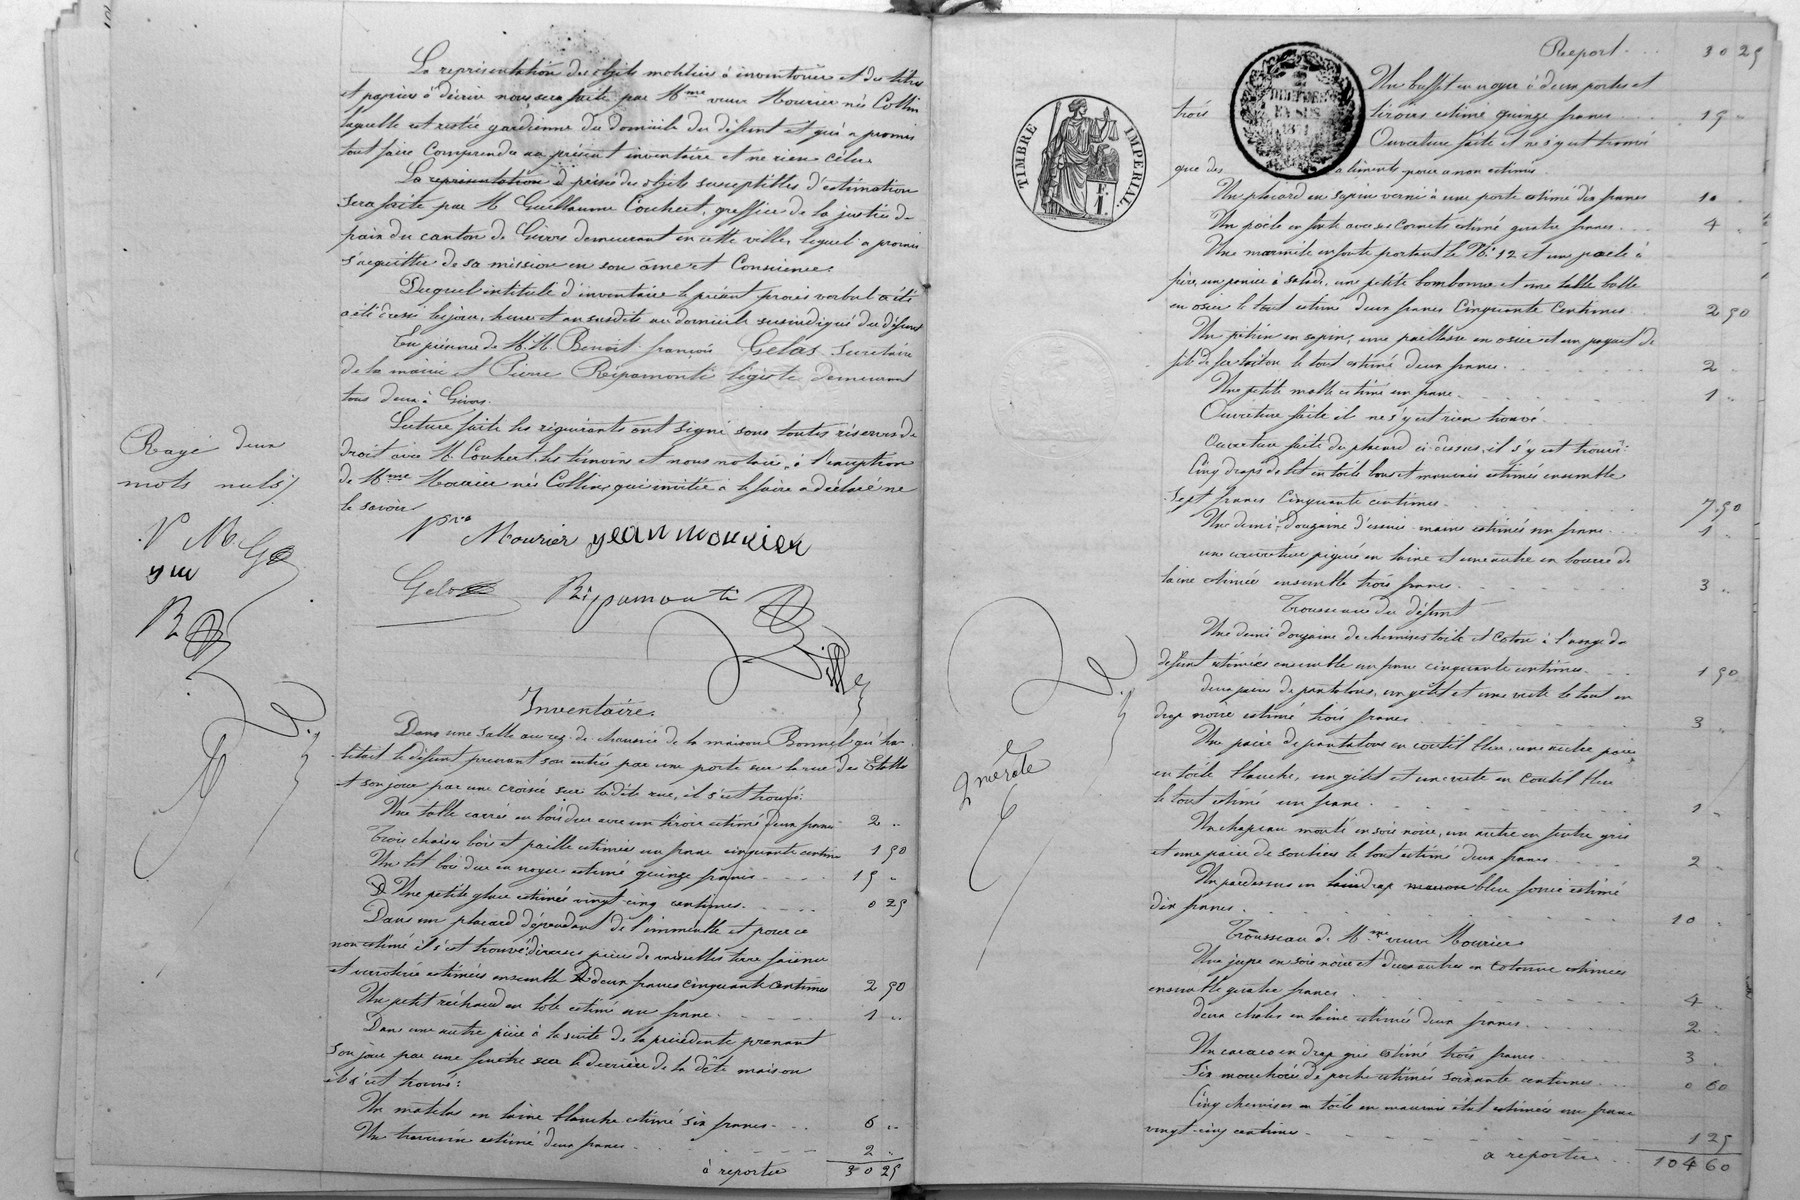 La représentation des objets mobiliers à inventorier et des titres
et papiers à décrire nous sera faite par Mme veuve Mourier née Collin
laquelle est restée gardienne du domicile du défunt et qui a promis
tout faire comprendre au présent inventaire et ne rien céler.
La représentation et prisée des objets susceptibles d'estimation
sera faite par M Guillaume Couhert, greffier de la justice de
paix du canton de Givors demeurant en cette ville, lequel a promis
s'acquitter de sa mission en son âme et Conscience.
Duquel intitulé d'inventaire le présent procès verbal a été
a été dressé les jour, heure et an susdits au domicile susindiqué du défunt
En présence de M.M. Benoit françois Gelas Secrétaire
de la mairie et Pierre Ripamonti légiste demeurant
tous deux à Givors.
Lecture faite les requérants ont signé sous toutes réserves de
droit avec M. Couhert, les témoins et nous notaire, à l'exception
de Mme Mourier née Collin, qui invitée à le faire a déclaré ne
le savoir
Rayé deux
mots nuls
V M. G
JM
R
Mourier jean mourier
Gelas Ripamonti
Inventaire.
Dans une salle au rez-de-chaussée de la maison Bonnel qu'ha-
bitait le défunt prenant son entrée par une porte sur la rue des
et son jour par une croisée sur la dite rue, il s'est trouvé:
Une table carrée en bois dur avec un tiroir estimé deux francs 2 "
Trois chaises bois et paille estimées un franc cinquante centimes 1 50
Un lit bois dur en noyer estimé quinze francs 15 "
Une petite glace estimée vingt-cinq centimes. 0 25
Dans un placard dépendant de l'immeuble et pour ce
non estimé il s'est trouvé: diverses pièces de vaisselles terre faïence
et verroterie estimées ensemble deux francs cinquante centimes 2 50
Un petit réchaud en tôle estimé un franc. 1 "
Dans une autre pièce à la suite de la précédente prenant
son jour par une fenêtre sur le derrière de la dite maison
il s'est trouvé:
Un matelas en laine blanche estimé six francs. 6 "
Un traversin estimé deux francs 2 "
à reporter 30 25
TIMBRE IMPÉRIAL.
F.
1.
Report 30 25
Un buffet en noyer à deux portes et
trois tiroirs estimé quinze francs 15 "
Ouverture faite il ne s'y est trouvé
que des aliments pour ce non estimés.
Un placard en sapin verni à une porte estimé dix francs 10 "
Un poêle en fonte avec ses cornets estimé quatre francs 4 "
Une marmite en fonte portant le N° 12 et une poêle à
frire, un panier à salade, une petite bombonne et une belle balle
en osier le tout estimé deux francs Cinquante Centimes 2 50
Un pétrin en sapin, une paillasse en osier et un paquet de
fil de fer laiton le tout estimé deux francs. 2 "
Une petite malle estimée un franc 1 "
Ouverture faite il ne s'y est rien trouvé.
Ouverture faite du placard ci-dessus, il s'y est trouvé:
Cinq draps de lit en toile bons et mauvais estimés ensemble
sept francs Cinquante centimes. 7.50
Une demi-douzaine d'essuie-mains estimés un franc 1 "
une couverture piquée en laine et une autre en bourre de
laine estimées ensemble trois francs. 3 "
Trousseau du défunt
Une demi douzaine de chemises toile et coton à l'usage du
défunt estimées ensemble un franc cinquante centimes. 1 50
deux paires de pantalons, un gilet et une veste le tout en
drap noire estimé trois francs 3 "
Une paire de pantalons en coutil bleu, une autre paire
en toile blanche, un gilet et une veste en coutil bleu
le tout estimé un franc. 1 "
Un chapeau monté en soie noire, un autre en feutre gris
et une paire de souliers le tout estimé deux francs 2 "
Un pardessus en drap marron bleu foncé estimé
dix francs. 10 "
Trousseau de Mme veuve Mourier
Une jupe en soie noire et deux autres en cotonne estimées
ensemble quatre francs 4 "
deux châles en laine estimés deux francs. 2 "
Un caraco en drap gris estimé trois francs 3 "
Six mouchoirs de poche estimés soixante centimes. 0 60
Cinq chemises en toile en mauvais état estimées un franc
vingt-cinq centimes 1 25
a reporter 104 60